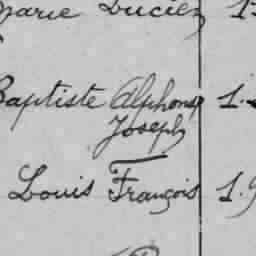 Marie Lucien
Baptiste Alphonse 1.
Joseph
Louis François 1.9